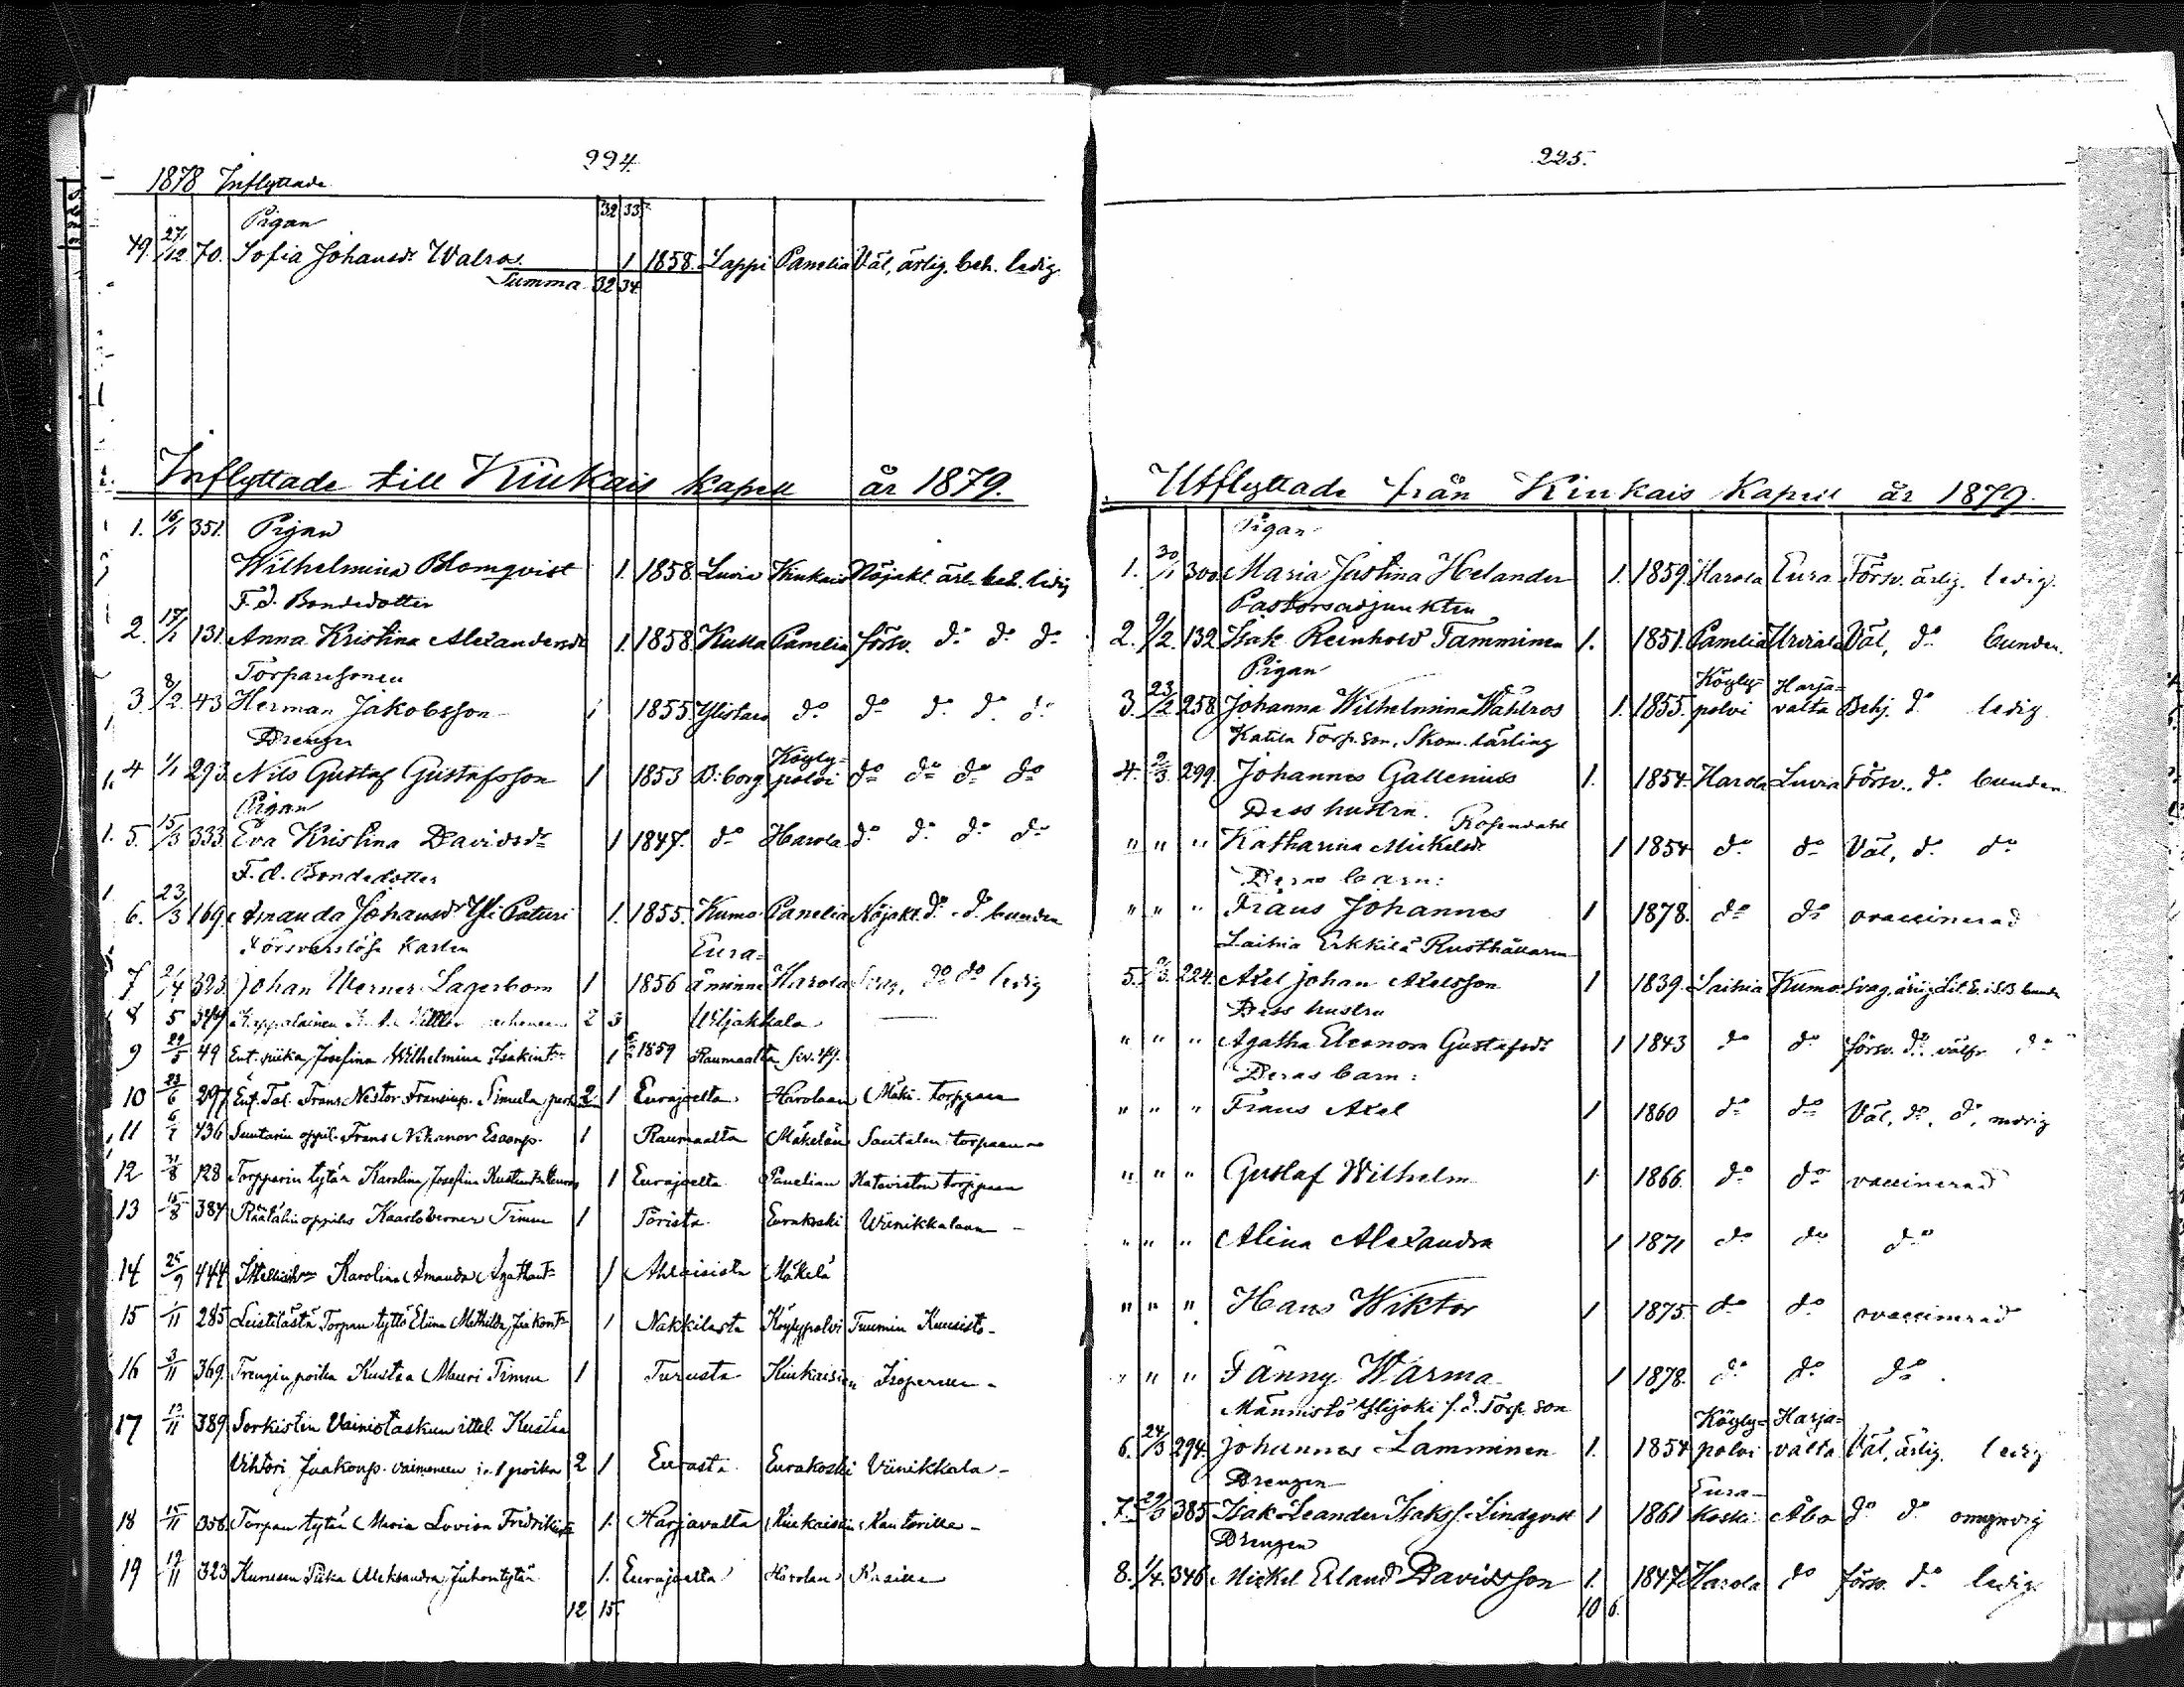 224.
1878 Inflyttade
32 33.
Pigan
49. 27/12 70. Sofia Johansdr Walros. 1 1858. Lappi Panelia Väl, ärlig. beh. ledig
Summa 32 34
Inflyttade till Kiukais kapell år 1879.
1. 16/1 351. Pigan
Wilhelmina Blomqvist 1. 1858. Luvia Kiukais Nöjakt. ärl. beh. ledig
F.d. Bondedotter
2. 17/1 131. Anna Kristina Alexandersdr 1. 1858. Kulla Panelia försv. do do do
Torparesonen
3. 8/2 43 Herman Jakobsson 1 1855. Ylistaro do do do do
Drengen
4 1/1 293. Nils Gustaf Gustafsson 1 1853 B:borg Köyly-polvi do do do do
Pigan
5. 15/3 333. Eva Kristina Davidsdr 1 1847. do Harola do do do do
F.d. Bondedotter
6. 23/3 169. Amanda Johansdr Yli Paturi 1. 1855. Kumo Panelia Nöjakt. do do bunden
Försvarslöse Karlen
7 2/4 323. Johan Werner Lagerbom 1 1856 Eura-åminne Harola do do ledig
8 5 344 2 3 Uljakkala
9 29/5 49 Ent. piika Josefina Wilhelmina Isakintr 1 1859 Raumaalta siv. 49.
10 23/6 297 Ent. Tal. Frans Nestor Fransinp. Simula 2 1 Eurajoelta Harolaan Mäki-torppaan
11 6/7 436 Suutarin oppil. Frans Nikanor Esaanp. 1 Raumaalta Mäkelän Santalan torpaan
12 31/8 128 Torpparin tytär Karolina Josefina 1 Eurajoelta Panelian Kataviston torppaan
13 15/8 384 Räätälin oppilas Kaarlo Verner Timm 1 Poristа Eurakoski Viinikkalaan -
14 25/9 444 Itsellisen Karolina Amanda Agathantr 1 Ahlaisista Mäkelä
15 1/11 285 Leistilästä Torpan tyttö Eliina Mathilda Jaakontr 1 Nakkilasta Köylypolvi Tuumin Kuusisto -
16 3/11 369. Trengin poika Kustaa Mauri Timm 1 Turusta Kiukaisien Isoperen -
17 12/11 389 Sorkistin Vainiotaskun ittel. Kustaa
Vihtori Jaakonp. vaimoneen ja 1 poika 2 1 Eurasta Eurakoski Viinikkala -
18 15/11 358. Torpan tytär Maria Lovisa Fredrikintr 1. Harjavalta Kiukaisiin Kantorille -
19 19/11 323 Kurusen Piika Aleksandra Juhontytär 1. Eurajoelta Harolan Kasille
12 15.
225.
Utflyttade från Kiukais Kapell år 1879.
Pigan
1. 30/1 300. Maria Justina Helander 1. 1859. Harola Eura Försv. ärlig. ledig.
Pastorsadjunkten
2. 9/2. 132 Isak Reinhold Tamminen 1. 1851. Panelia Urdiala Väl, do bunden.
Pigan
3. 23/2 258 Johanna Wilhelmina Wahlros 1. 1855. Köyly-polvi Harja-valta Behj. do ledig
Katila Torp. son, Skom. lärling
4. 2/3. 299. Johannes Gallenius 1. 1854. Harola Luvia Försv. do bunden.
Dess hustru. Rosendahl
" " " Katharina Mickelsdr 1 1854 do do Väl, do do
Deras barn:
" " " Frans Johannes 1 1878. do do ovaccinerad
Laihia Erkkilä Rusthållaren
5. 9/3. 224. Axel Johan Axelsson 1 1839. Laihia Kumo Svag, ärlig
Dess hustru
" " " Agatha Eleonora Gustafsdr 1 1843 do do försv. do välfr. do
Deras barn:
" " " Frans Axel 1 1860 do do Väl, do, do,
" " " Gustaf Wilhelm 1 1866. do do vaccinerad
" " " Alina Alexandra 1 1871 do do do
" " " Hans Wiktor 1 1875. do do ovaccinerad
" " " Fanny Warma 1 1878. do do do.
Männistö Ylijoki f.d. Torp. son
6. 24/3 294. Johannes Lamminen 1. 1854 Köyly-polvi Harja-valta Väl, ärlig. ledig
Drengen
7. 29/3 385 Isak Leander Isakss. Lindqvist 1 1861 Eura-koski Åbo do do omyndig
Drengen
8. 1/4. 346 Mickel Erland Davidsson 1. 1847 Harola do försv. do ledig.
10 6.